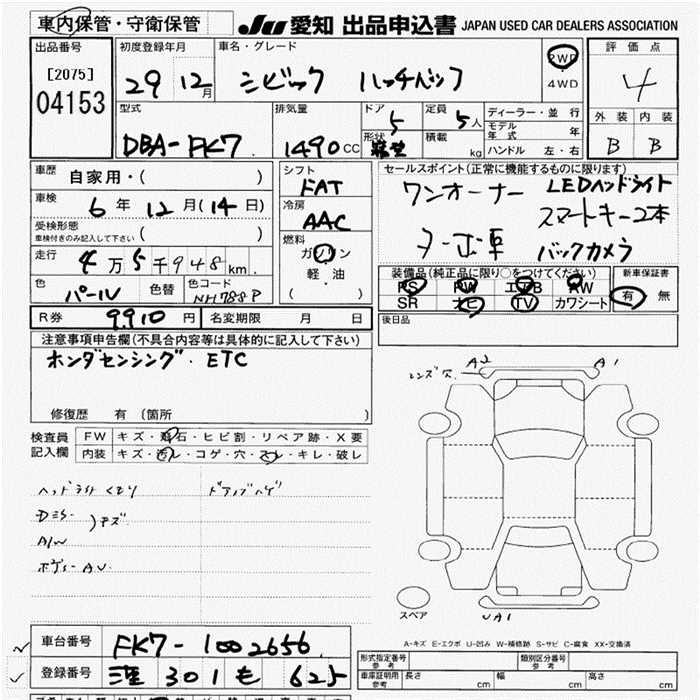 車内保管・守衛保管
JU 愛知 出品申込書 JAPAN USED CAR DEALERS ASSOCIATION
出品番号
[2075]
04153
初度登録年月
29 12月
車名・グレード
シビック ハッチバック
2WD
4WD
評価点
4
外装 内装
B B
型式
DBA-FK7
排気量
1490 CC
ドア
5
形状
定員
5人
積載
kg
ディーラー・並行
モデル年式 年
ハンドル 左・右
車歴
自家用・( )
車検
6年 12月(14日)
受検形態
車検付きのみ記入して下さい ( )
走行
4万5千948km
色
パール
色替
色コード
NH788P
シフト
FAT
冷房
AAC
燃料
ガソリン
軽・油
( )
セールスポイント(正常に機能するものに限ります)
ワンオーナー LEDヘッドライト
スマートキー2本
ターボ車 バックカメラ
装備品(純正品に限り○をつけてください)
PS PW エアB AW
SR ナビ TV カワシート
新車保証書
有 無
R券 9910円
名変期限 月 日
後日品
注意事項申告欄(不具合内容等は具体的に記入して下さい)
ホンダセンシング. ETC
修復歴 有 (箇所 )
検査員記入欄
FW キズ・飛石・ヒビ割・リペア跡・X要
内装 キズ・汚レ・コゲ・穴・スレ・キレ・破レ
ヘッドライトくもり
ドアノブハゲ
キズ
A/W
ボデー AU
レンズ穴
A2
A1
UA1
スペア
A-キズ E-エクボ U-凹み W-補修跡 S-サビ C-腐食 XX-交換済
車台番号 FK7-1002656
登録番号 301 も 625
形式指定番号 参考
類別区分番号 参考
車庫証明用 参考
長さ cm 幅 cm 高さ cm